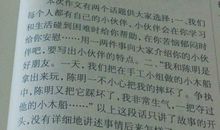 本次作文有两个话题供大家选择:一、我们
每个人都有自己的小伙伴,小伙伴会在学习
和生活碰到困难时给你帮助,在你苦恼郁闷时
给你安慰……用一两件事向大家介绍你的小伙
伴吧,要写出小伙伴的特点。二、“我和陈明是
好朋友。一天,我们把在手工小组做的小木船
拿出来玩,陈明一不小心把我的摔坏了。争执
中,陈明又把它踩坏了,我非常生气,一把夺过
他的小木船……”以上这段话只讲了故事的开
头,没有详细地讲述事情后来怎样